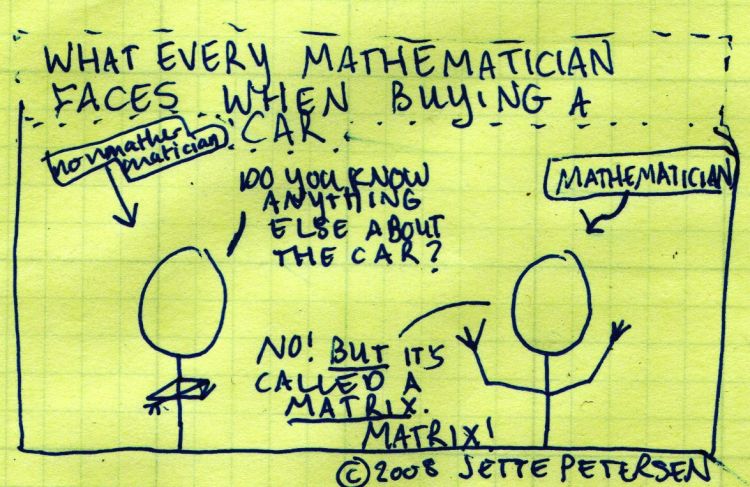 WHAT EVERY MATHEMATICIAN
FACES WHEN BUYING A
CAR
nonmathe-
matician
MATHEMATICIAN
DO YOU KNOW
ANYTHING
ELSE ABOUT
THE CAR?
NO! BUT IT'S
CALLED A
MATRIX.
MATRIX!
© 2008 JETTE PETERSEN